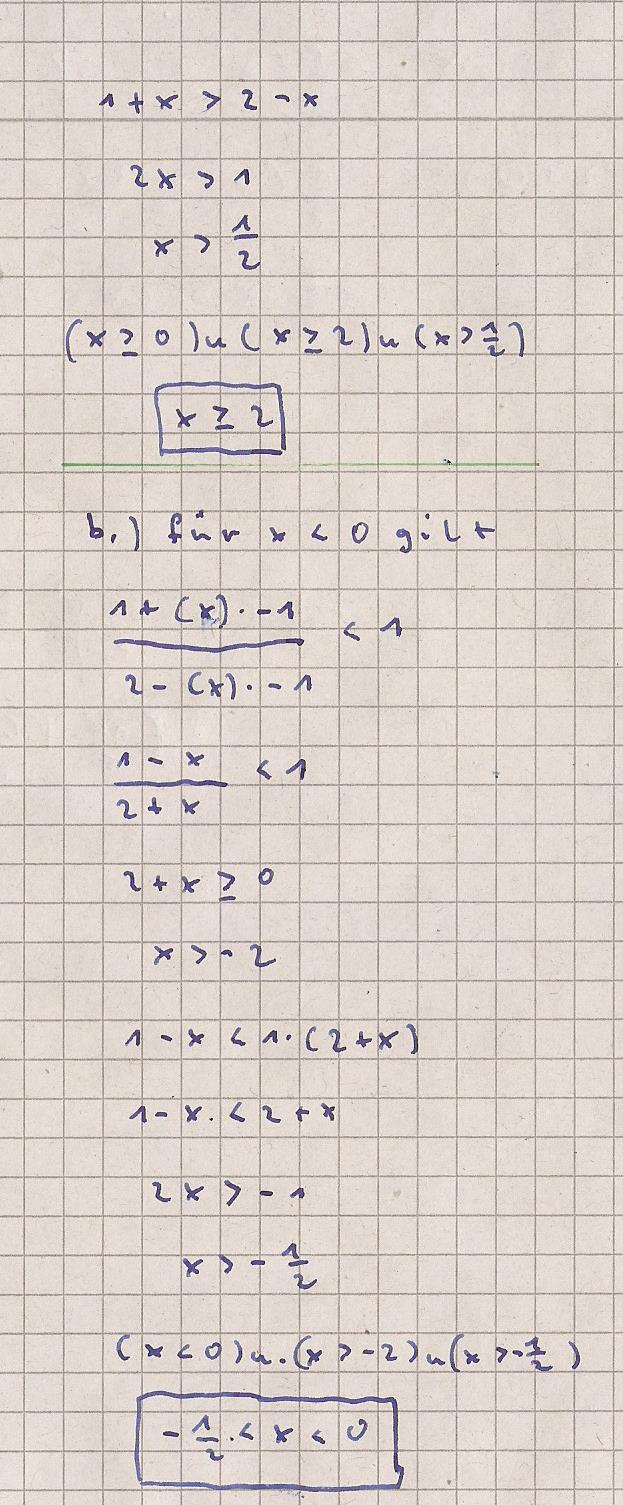 1 + x > 2 - x
2x > 1
x > 1/2
(x ≥ 0) u (x ≥ 2) u (x > 1/2)
x ≥ 2
b.) für x < 0 gilt
(1 + (x) · -1)/(2 - (x) · -1) < 1
(1 - x)/(2 + x) < 1
2 + x ≥ 0
x > -2
1 - x < 1 · (2 + x)
1 - x. < 2 + x
2x > -1
x > -1/2
(x < 0) u. (x > -2) u (x > -1/2)
-1/2 .< x < 0